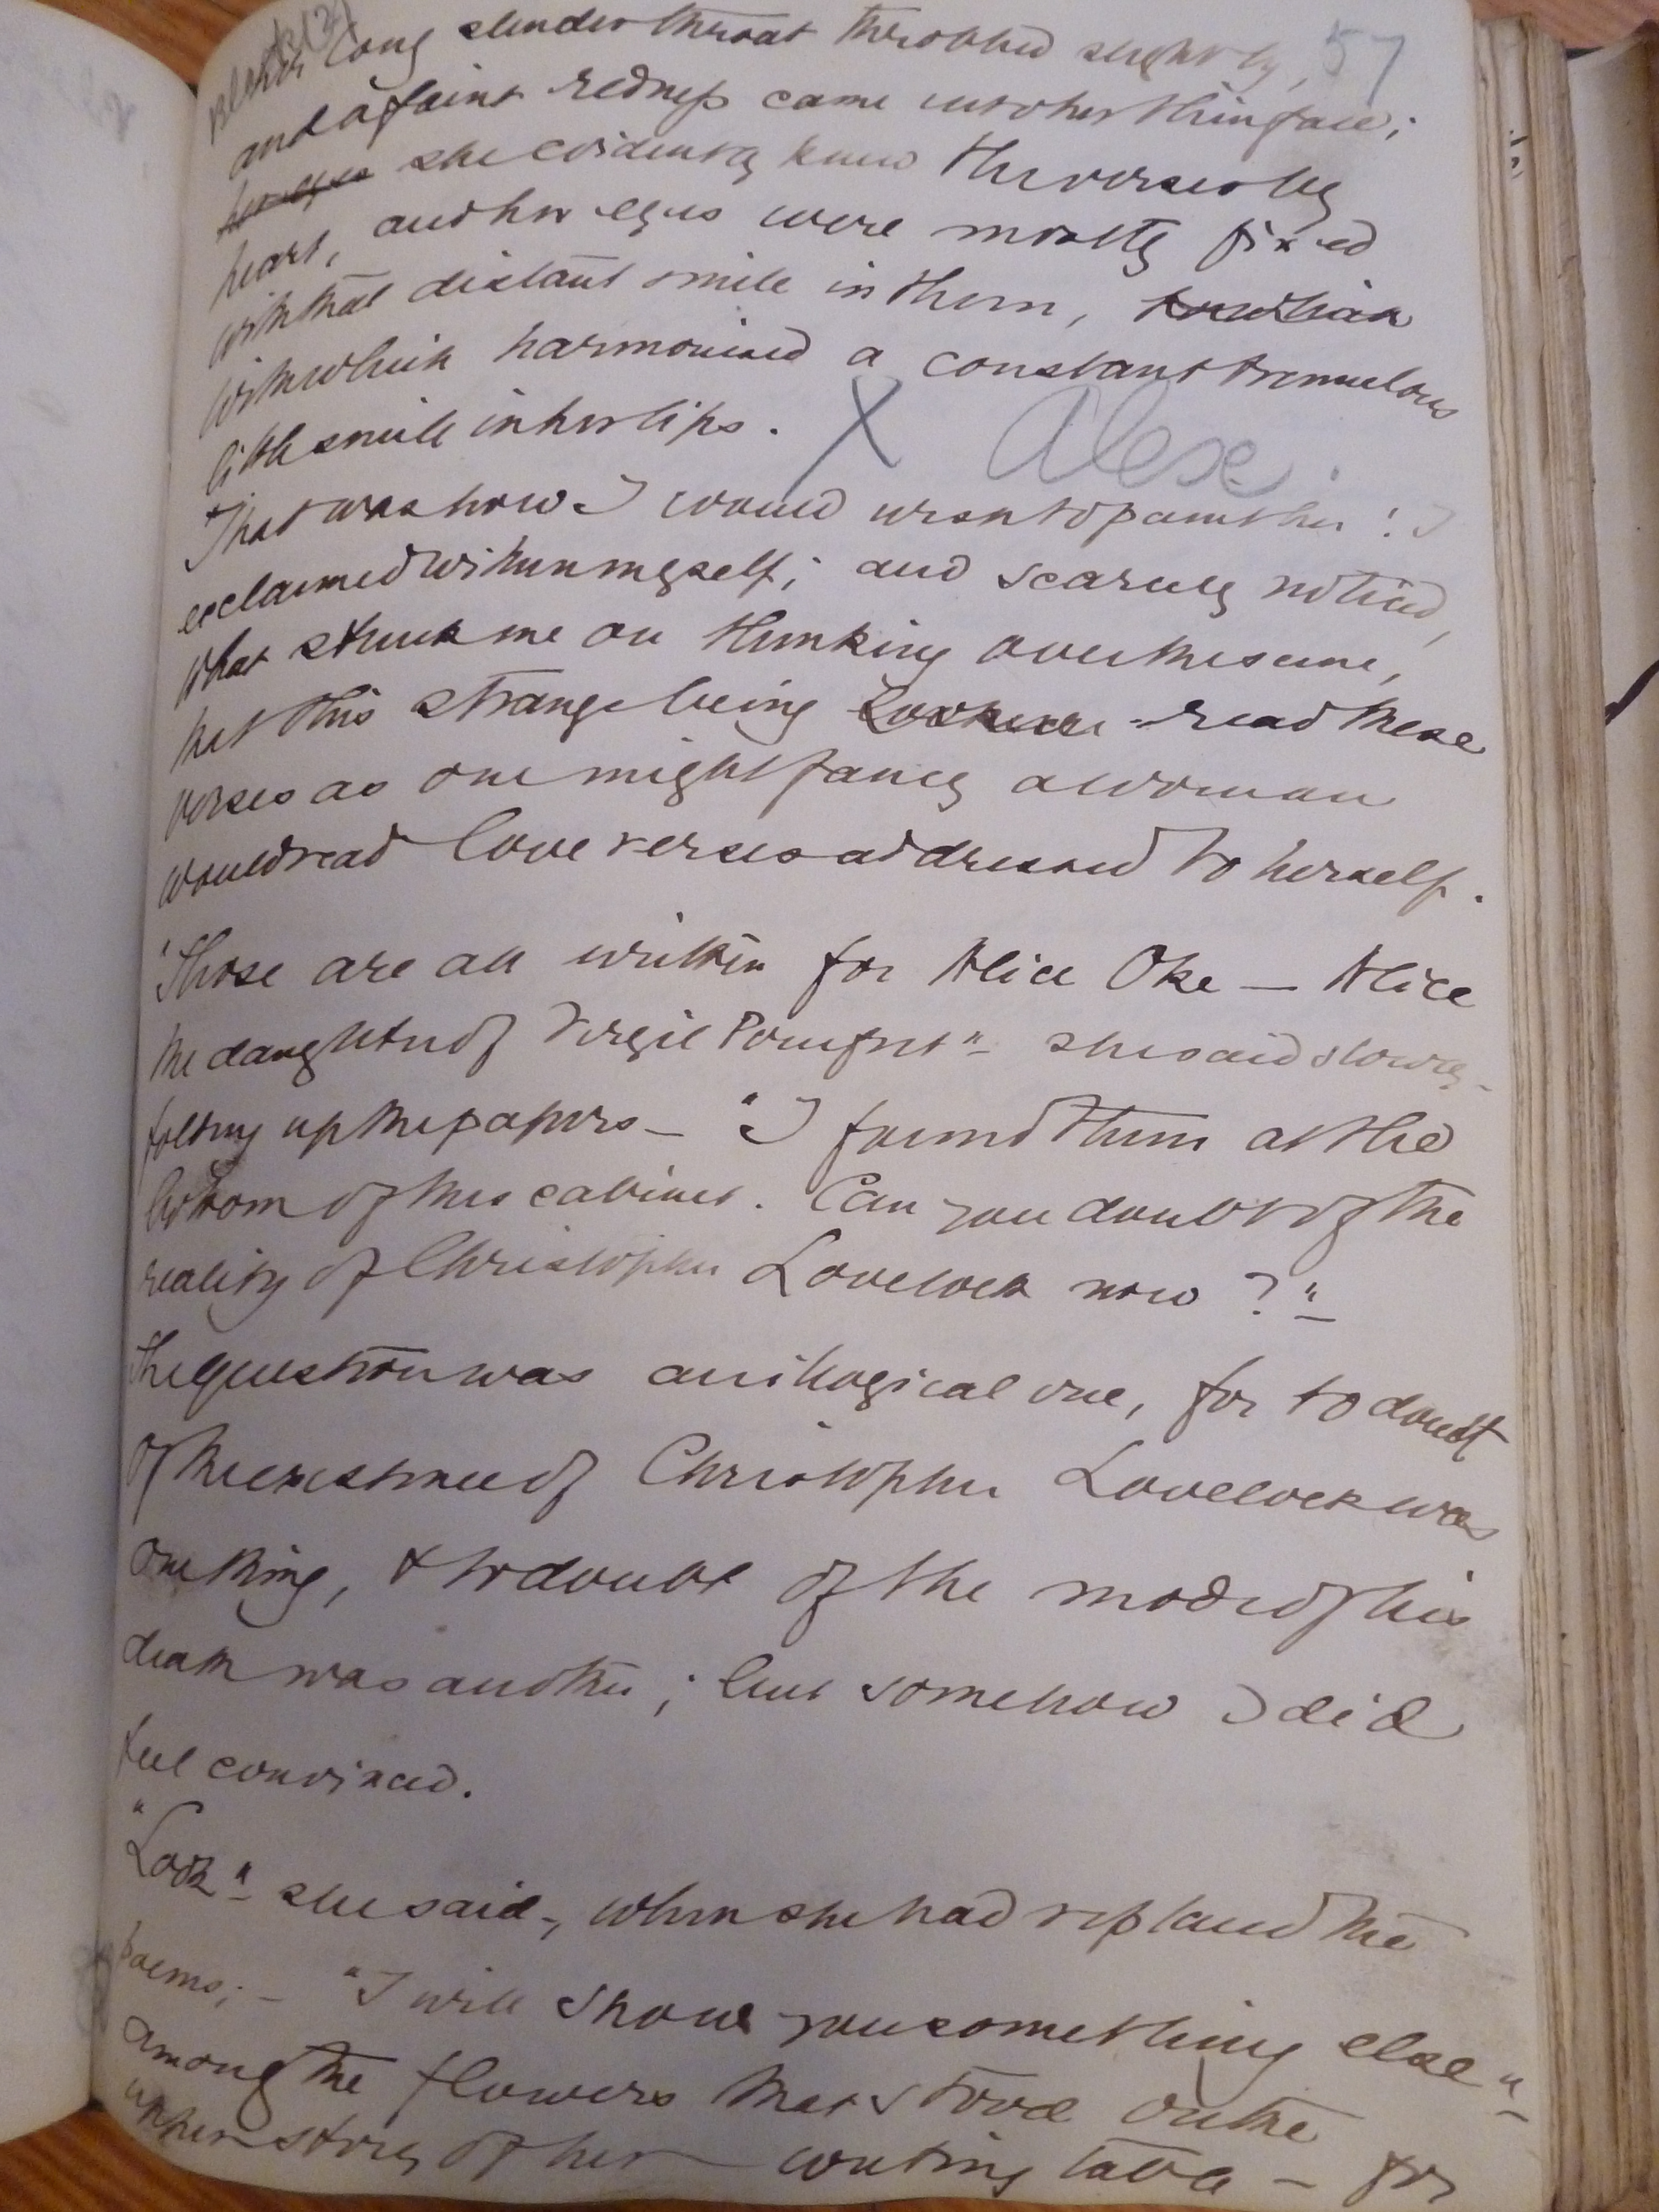 57
long slender throat throbbed slightly,
and a faint redness came into her thin face;
her eyes she evidently knew the verses by
heart, and her eyes were mostly fixed
with that distant smile in them,
with which harmonised a constant tremulous
little smile in her lips. X Alex.
"That was how I would wish to paint her! I
exclaimed within myself; and scarcely noticed,
what struck me on thinking over the scene,
that this strange being read these
verses as one might fancy a woman
would read love verses addressed to herself.
"Those are all written for Alice Oke — Alice
the daughter of Virgil Pomfret" – she said slowly –
folding up the papers – "I found them at the
bottom of this cabinet. Can you doubt of the
reality of Christopher Lovelock now?" –
The question was an illogical one, for to doubt
of the existence of Christopher Lovelock was
one thing, & to doubt of the mode of his
death was another; but somehow I did
feel convinced.
"Look" – she said –, when she had replaced the
poems; – "I will show you something else" –
among the flowers that stood on the
upper story of her writing table – for